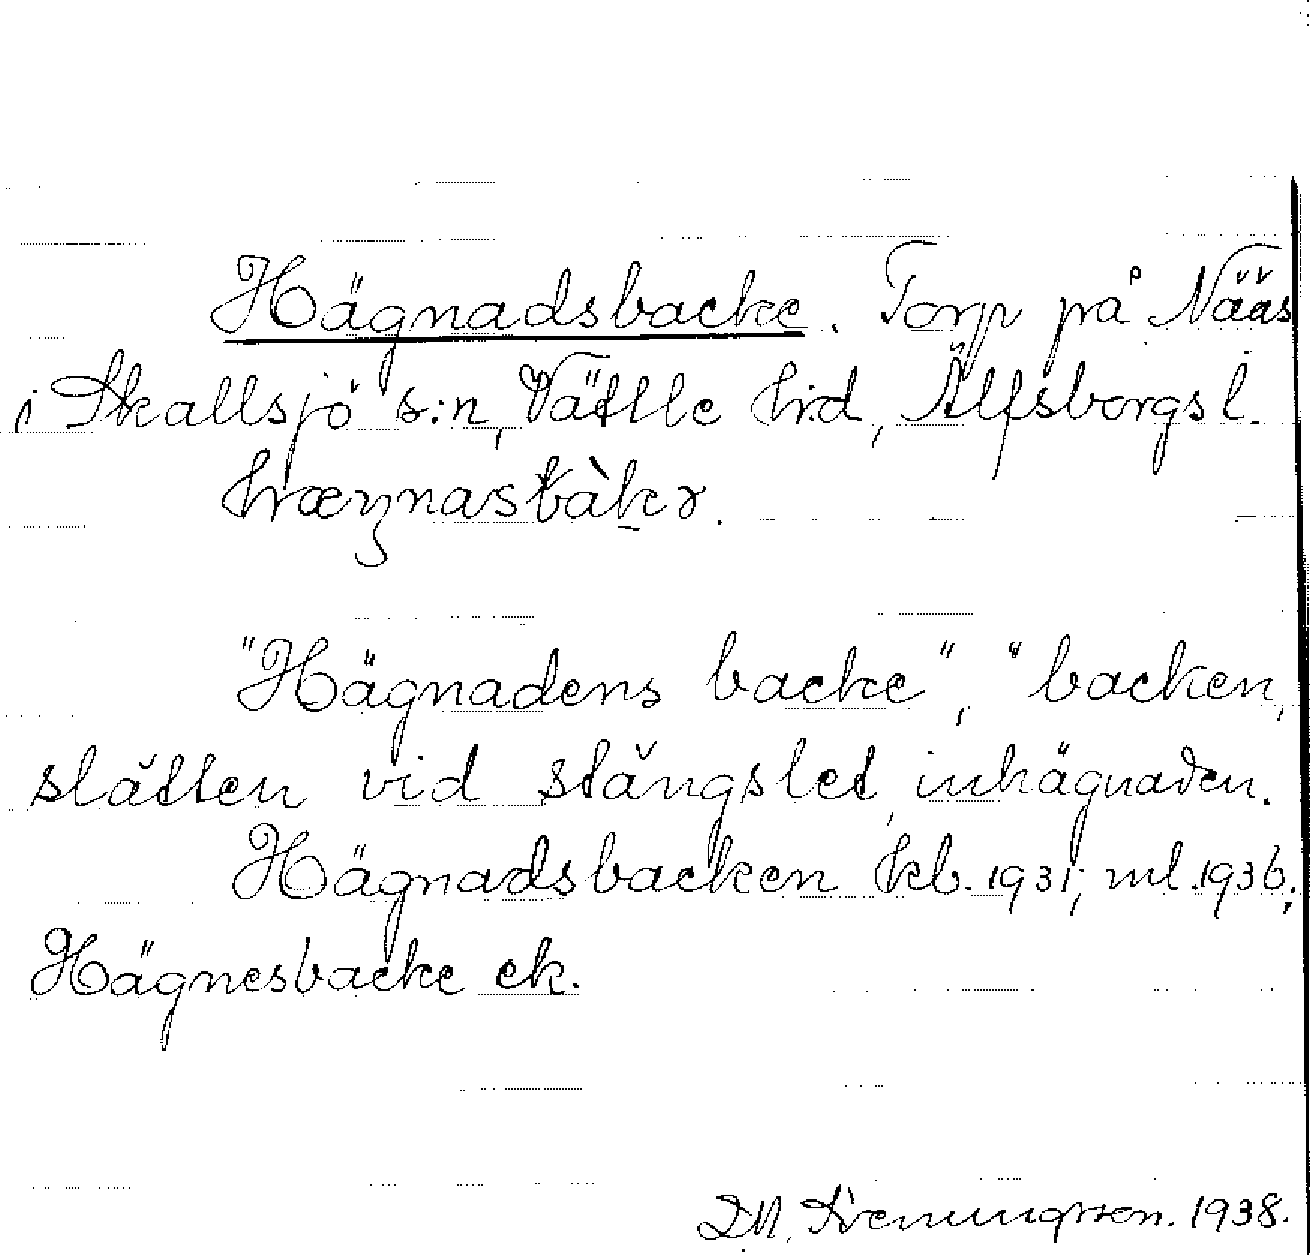 Hägnadsbacke. Torp på Nääs
i Skallsjö s:n, Vättle hrd, Älfsborgs l.
hæŋnasbàkə.
"Hägnadens backe", "backen,
slätten vid stängslet, inhägnaden.
Hägnadsbacken kb. 1931; ml. 1936;
Hägnesbacke ek.
1938.